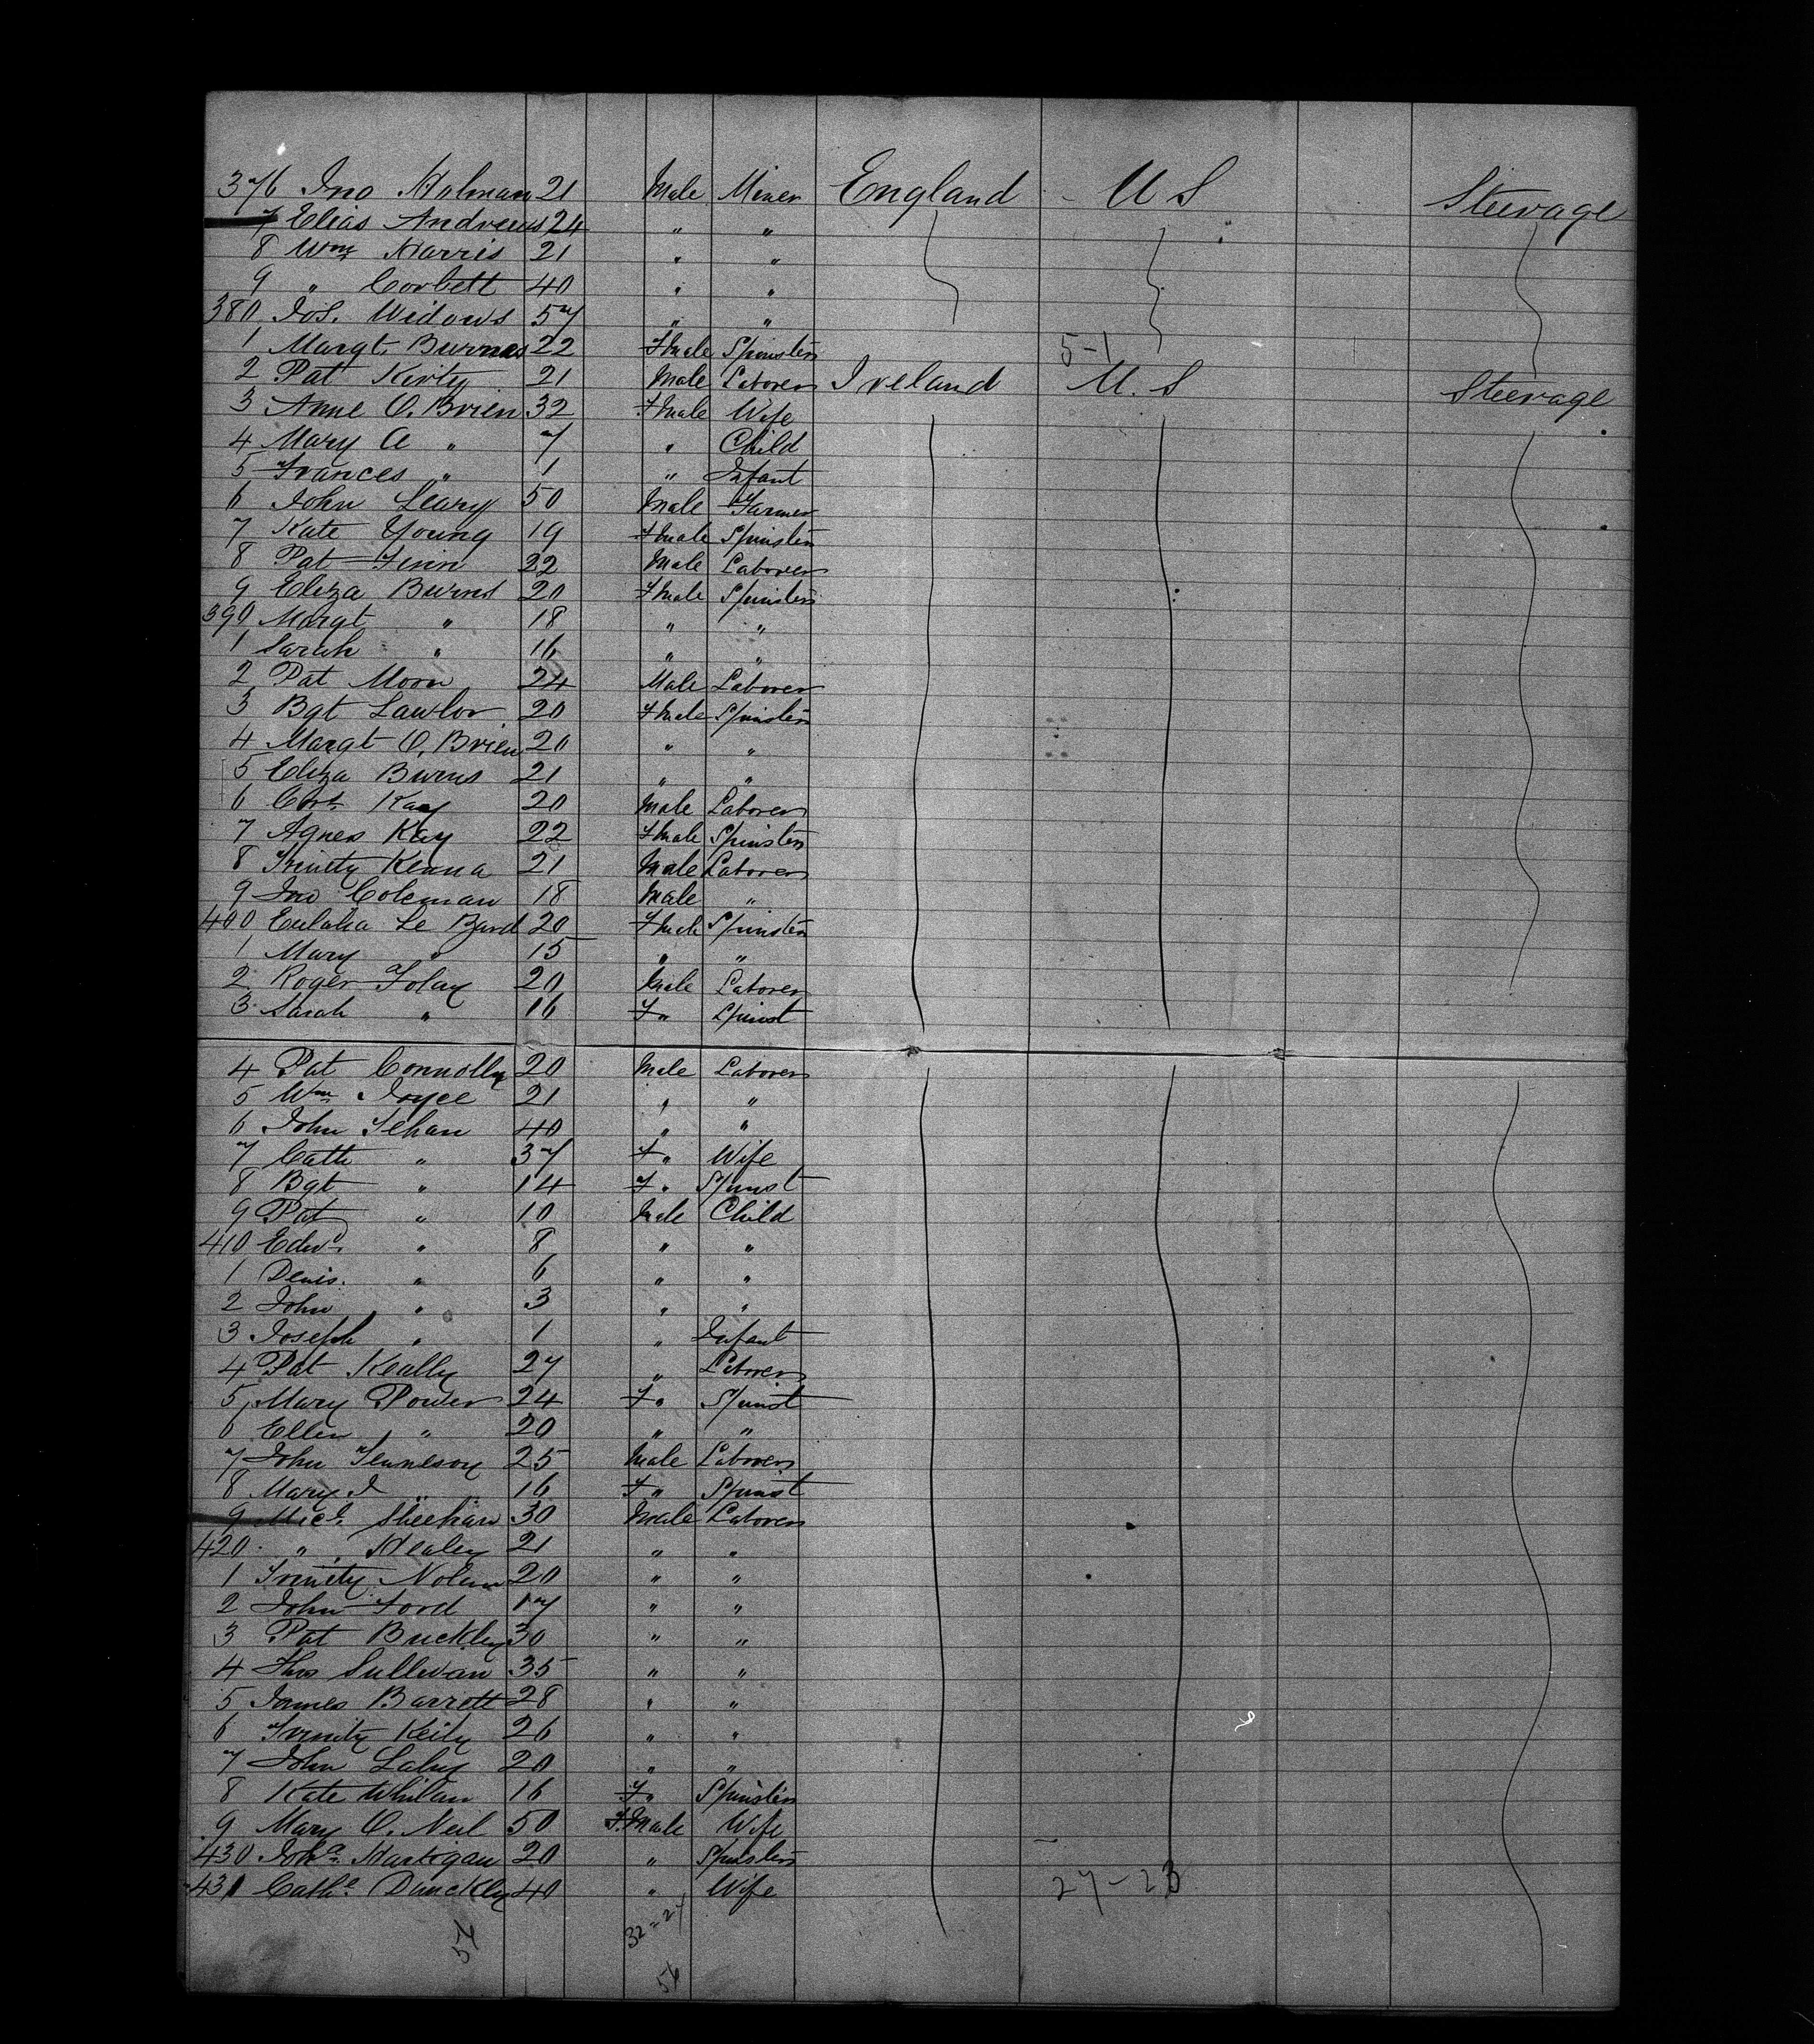 376 Jno Holman 21 Male Miner England U S Steerage
7 Elias Andrews 24 " "
8 Wm Harris 21 " "
9 " Corbett 40 " "
380 Jos. Widows 57 " "
1 Margt. Burnes 22 Fmale Spinster 5-1
2 Pat Kirty 21 Male Laborer Ireland U. S Steerage
3 Anne O. Brien 32 Fmale Wife
4 Mary A " 7 " Child
5 Frances " 1 " Infant
6 John Leary 50 Male Farmer
7 Kate Young 19 Fmale Spinster
8 Pat Finn 22 Male Laborer
9 Eliza Burns 20 Fmale Spinster
390 Margt " 18 " "
1 Sarah " 16 " "
2 Pat Moon 24 Male Laborer
3 Bgt Lawlor 20 Fmale Spinster
4 Margt O. Brien 20 " "
5 Eliza Burns 21 " "
6 Kay 20 Male Laborer
7 Agnes Kay 22 Fmale Spinster
8 Trinity Kenna 21 Male Laborer
9 Jno Coleman 18 Male "
400 Eulalia Le Bard 20 Fmale Spinster
1 Mary " 15 " "
2 Roger Foley 20 Male Laborer
3 Sarah " 16 F " Spinst
4 Pat Connolly 20 Male Laborer
5 Wm Joyce 21 " "
6 John Fehan 40 " "
7 Cath " 37 F " Wife
8 Bgt " 14 F " Spinst
9 Pat " 10 Male Child
410 Edwd. " 8 " "
1 Denis. " 6 " "
2 John " 3 " "
3 Joseph " 1 " Infant
4 Pat Keally 27 " Laborer
5 Mary Power 24 F " Spinst
6 Ellen " 20 " "
7 John Tenneson 25 Male Laborer
8 Mary J " 16 F " Spinst
9 Micl. Sheehan 30 Male Laborer
420 " Healey 21 " "
1 Trinity Nolan 20 " "
2 John Ford 17 " "
3 Pat Buckley 30 " "
4 Thos Sullivan 35 " "
5 James Barrett 28 " "
6 Trinity Keily 26 " "
7 John Lahy 20 " "
8 Kate Whilan 16 F " Spinster
9 Mary O. Neil 50 F. Male Wife
430 Joha. Hartigan 20 " Spinster
431 Cathe. Dunckley 40 " Wife 27-23
56 32=24
56